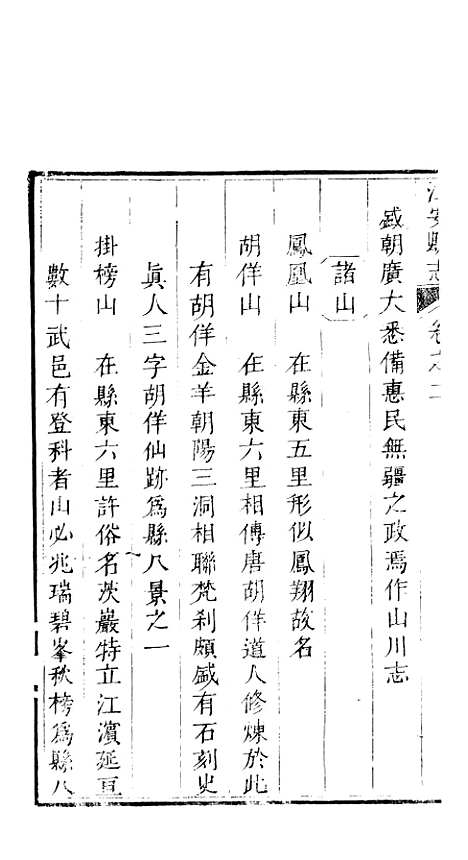 江安縣志 卷之二
盛朝廣大悉備惠民無疆之政焉作山川志
諸山
鳳凰山 在縣東五里形似鳳翔故名
胡佯山 在縣東六里相傳唐胡佯道人修煉於此
有胡佯金羊朝陽三洞相聯梵刹頗盛有石刻史
眞人三字胡佯仙跡爲縣八景之一
掛榜山 在縣東六里許俗名茨巖特立江濱延亘
數十武邑有登科者山必兆瑞碧峯秋榜爲縣八